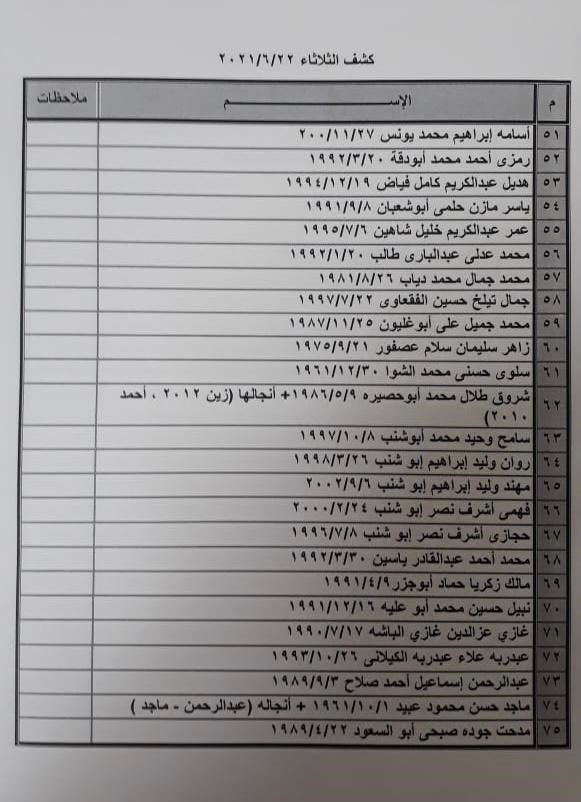 كشف الثلاثاء ٢٠٢١/٦/٢٢
م الإســـــم ملاحظات
٥١ أسامه إبراهيم محمد يونس ٢٠٠/١١/٢٧
٥٢ رمزى أحمد محمد أبودقة ١٩٩٢/٣/٢٠
٥٣ هديل عبدالكريم كامل فياض ١٩٩٤/١٢/١٩
٥٤ ياسر مازن حلمى أبوشعبان ١٩٩١/٩/٨
٥٥ عمر عبدالكريم خليل شاهين ١٩٩٥/٧/٦
٥٦ محمد عدلى عبدالبارى طالب ١٩٩٢/١/٢٠
٥٧ محمد جمال محمد دياب ١٩٨١/٨/٢٦
٥٨ جمال تيلخ حسين الفقعاوى ١٩٩٧/٧/٢٢
٥٩ محمد جميل على أبوغليون ١٩٨٧/١١/٢٥
٦٠ زاهر سليمان سلام عصفور ١٩٧٥/٩/٢١
٦١ سلوى حسنى محمد الشوا ١٩٦١/١٢/٣٠
٦٢ شروق طلال محمد أبوحصيره ١٩٨٦/٥/٩+ أنجالها (زين ٢٠١٢ ، أحمد
٢٠١٠)
٦٣ سامح وحيد محمد أبوشنب ١٩٩٧/١٠/٨
٦٤ روان وليد إبراهيم إبو شنب ١٩٩٨/٣/٢٦
٦٥ مهند وليد إبراهيم إبو شنب ٢٠٠٢/٩/٦
٦٦ فهمى أشرف نصر إبو شنب ٢٠٠٠/٢/٢٤
٦٧ حجازى أشرف نصر إبو شنب ١٩٩٦/٧/٨
٦٨ محمد أحمد عبدالقادر ياسين ١٩٩٢/٣/٣٠
٦٩ مالك زكريا حماد أبوجزر ١٩٩١/٤/٩
٧٠ نبيل حسين محمد أبو عليه ١٩٩١/١٢/١٦
٧١ غازي عزالدين غازي الباشه ١٩٩٠/٧/١٧
٧٢ عبدربه علاء عبدربه الكيلانى ١٩٩٣/١٠/٢٦
٧٣ عبدالرحمن إسماعيل أحمد صلاح ١٩٨٩/٩/٣
٧٤ ماجد حسن محمود عبيد ١٩٦١/١٠/١ + أنجاله (عبدالرحمن - ماجد )
٧٥ مدحت جوده صبحى أبو السعود ١٩٨٩/٤/٢٢